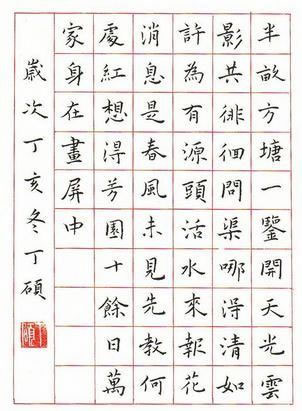 半畝方塘一鑒開天光雲
影共徘徊問渠哪得清如
許為有源頭活水來報花
消息是春風未見先教何
處紅想得芳園十餘日萬
家身在畫屏中
歲次丁亥冬丁碩